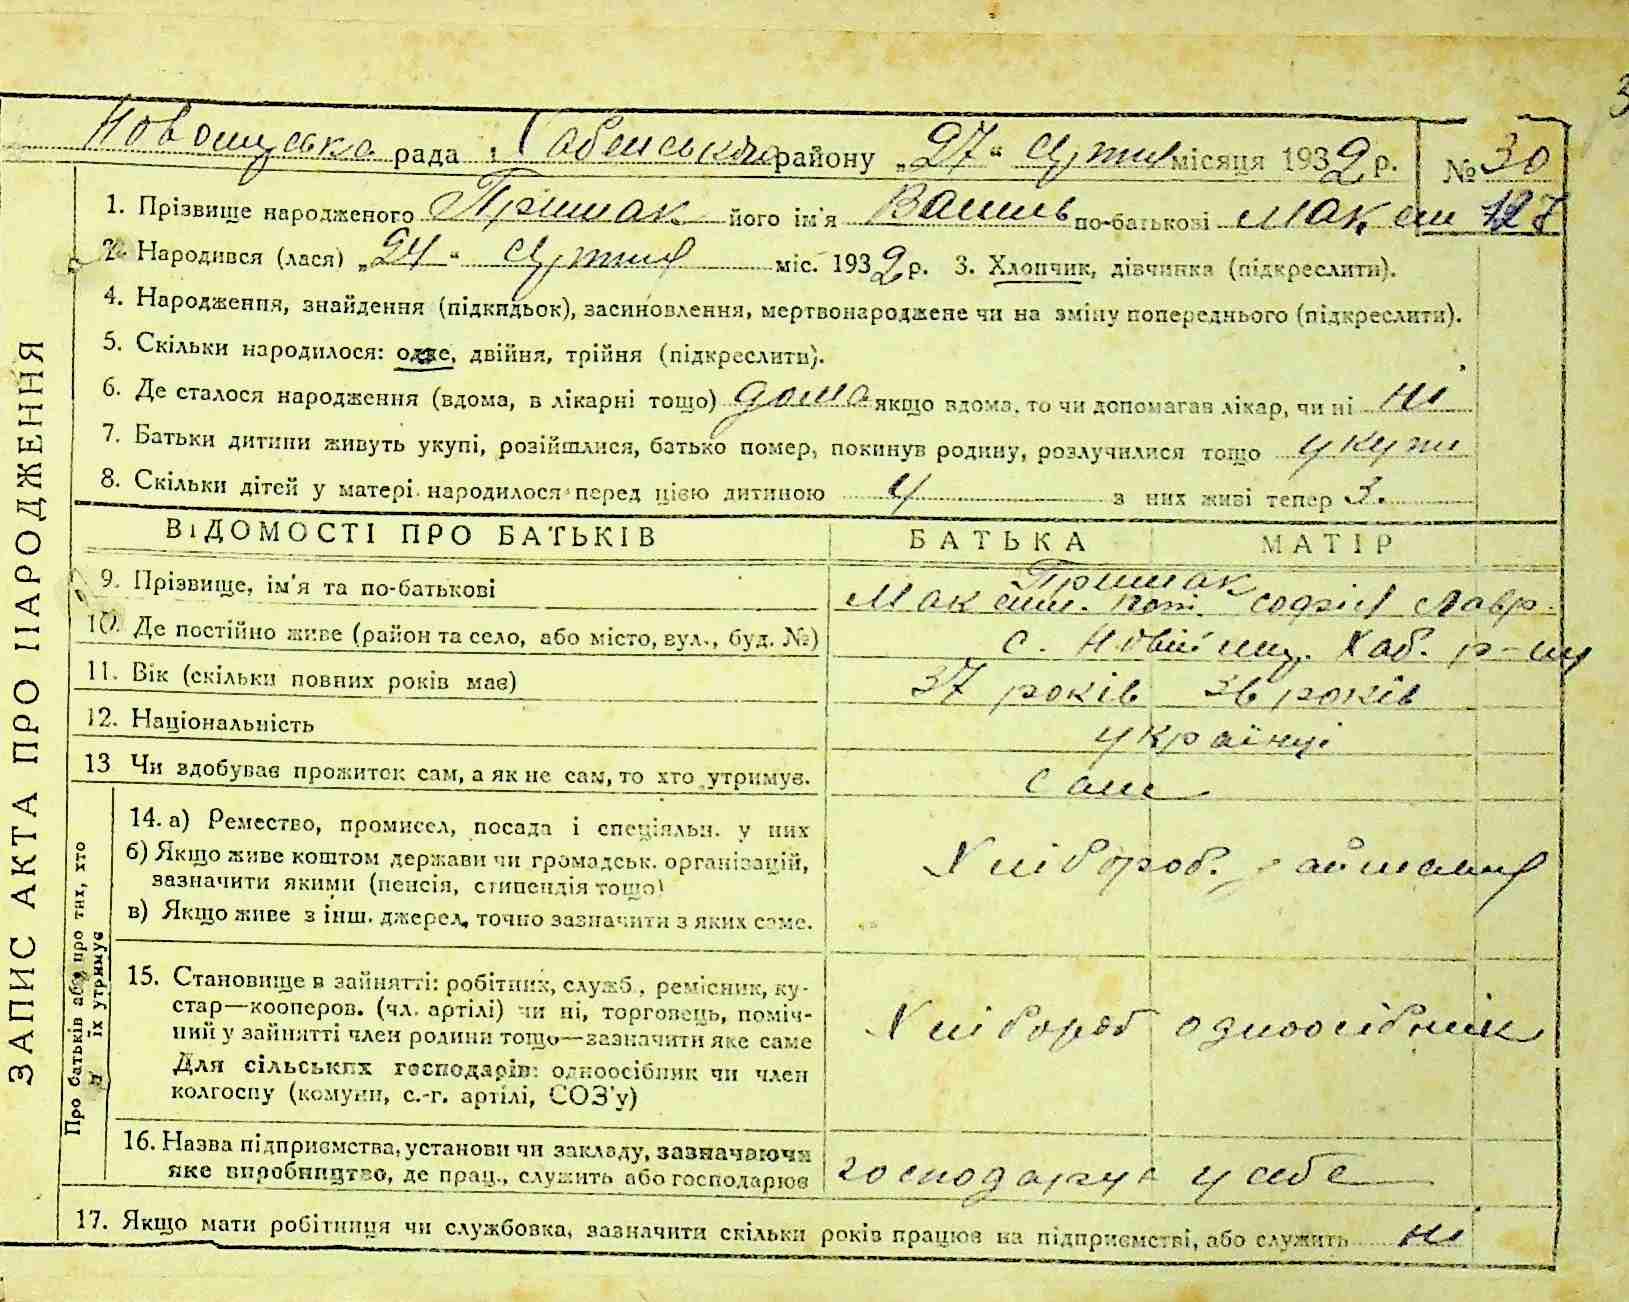 ЗАПИС АКТА ПРО НАРОДЖЕННЯ
рада району „27“ місяця 1932 р. № 30
1. Прізвище народженого Примак його ім'я Василь по-батькові Максим 127
2. Народився (лася) „24“ міс. 1932 р. 3. Хлопчик, дівчинка (підкреслити).
4. Народження, знайдення (підкидьок), засиновлення, мертвонароджене чи на зміну попереднього (підкреслити).
5. Скільки народилося: одне, двійня, трійня (підкреслити).
6. Де сталося народження (вдома, в лікарні тощо) дома якщо вдома, то чи допомагав лікар, чи ні ні
7. Батьки дитини живуть укупі, розійшлися, батько помер, покинув родину, розлучилися тощо укупі
8. Скільки дітей у матері народилося перед цією дитиною 4 з них живі тепер 3.
ВІДОМОСТІ ПРО БАТЬКІВ БАТЬКА МАТІР
9. Прізвище, ім'я та по-батькові Примак
Максим. Софія Лавр.
10. Де постійно живе (район та село, або місто, вул., буд. №) с. Хаб. р-ну
11. Вік (скільки повних років має) 37 років 36 років
12. Національність українці
13 Чи здобував прожиток сам, а як не сам, то хто утримує. самі
Про батьків або про тих, хто їх утримує
14. а) Ремество, промисел, посада і спеціяльн. у них
б) Якщо живе коштом держави чи громадськ. організацій,
зазначити якими (пенсія, стипендія тощо)
в) Якщо живе з інш. джерел, точно зазначити з яких саме.
Хлібороб.
15. Становище в зайнятті: робітник, служб., ремісник, ку-
стар—кооперов. (чл. артілі) чи ні, торговець, поміч-
ний у зайнятті член родини тощо—зазначити яке саме
Для сільських господарів: одноосібник чи член
колгоспу (комуни, с.-г. артілі, СОЗ'у)
Хлібороб одноосібник
16. Назва підприємства, установи чи закладу, зазначаючи
яке виробництво, де прац., служить або господарює господарує у себе
17. Якщо мати робітниця чи службовка, зазначити скільки років працює на підприємстві, або служить ні